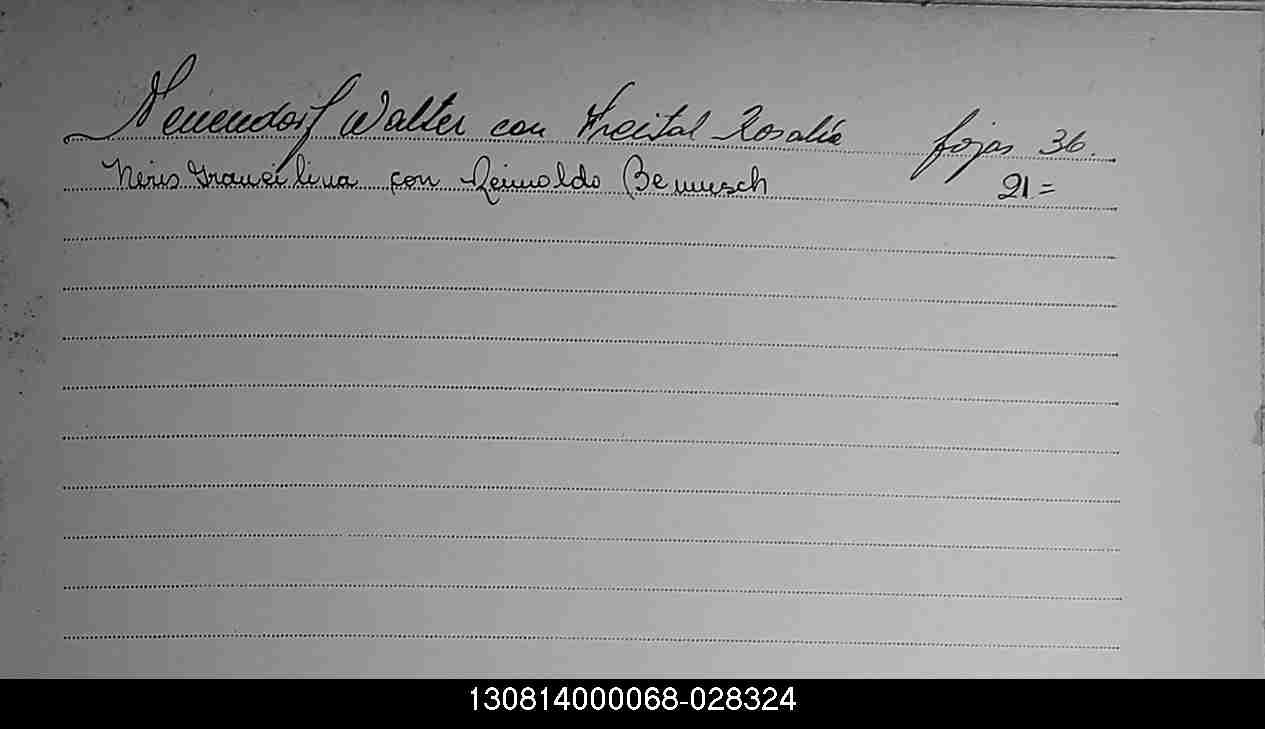 Neuendorf Walter con Freital Rosalia fojas 36.
Neris Graucilina con Reinoldo Bemusch 21=
130814000068-028324